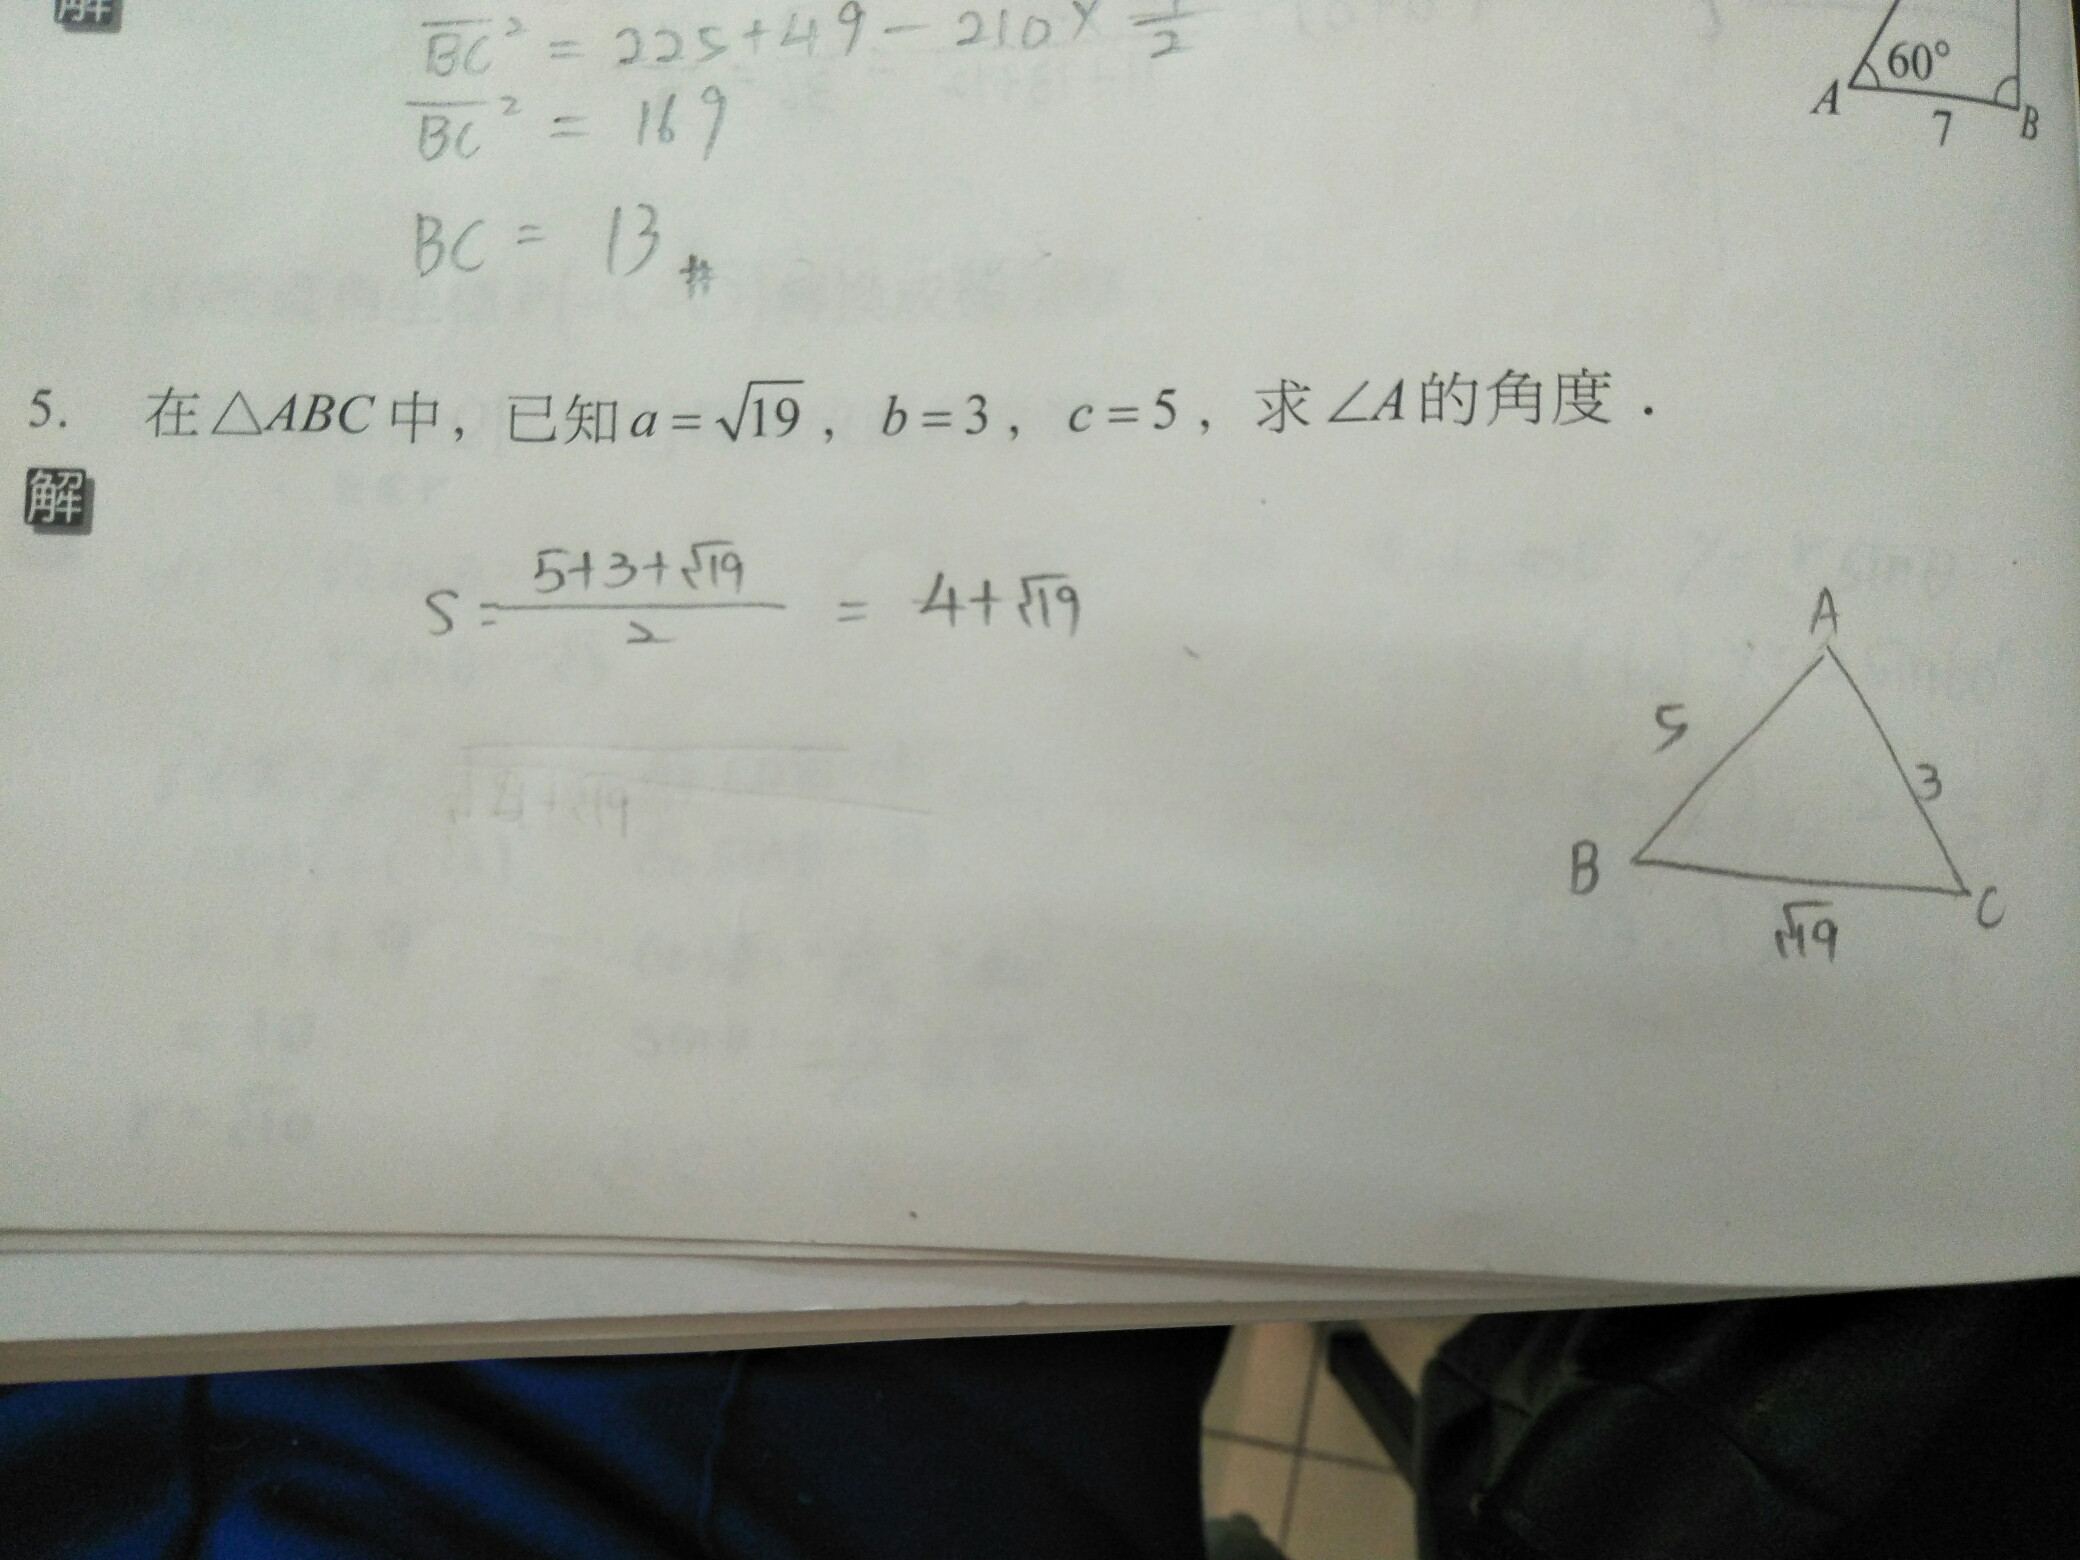 解
BC² = 225+49-210×1/2
BC² = 169
BC = 13 #
A 60° 7 B
5. 在△ABC中，已知a=√19，b=3，c=5，求∠A的角度．
解
S = (5+3+√19)/2 = 4+√19
A
5
3
B
C
√19